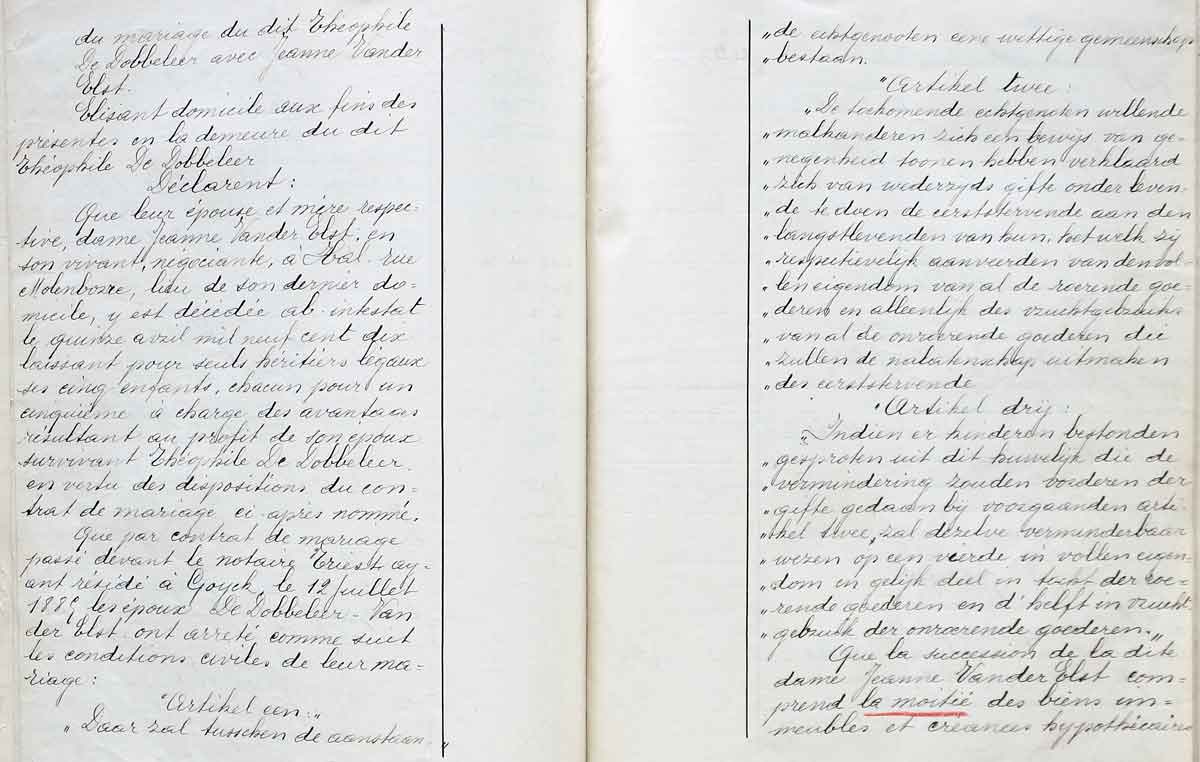 du mariage du dit Théophile
De Dobbeleer avec Jeanne Vander
Elst.
Elisant domicile aux fins des
présentes en la demeure du dit
Théophile De Dobbeleer
Déclarent :
Que leur épouse et mère respec-
tive, dame Jeanne Vander Elst, en
son vivant, négociante, à Hal rue
Molenborre, lieu de son dernier do-
micile, y est décédée ab intestat
le quinze avril mil neuf cent dix
laissant pour seuls héritiers légaux
ses cinq enfants, chacun pour un
cinquième à charge des avantages
résultant au profit de son époux
survivant Théophile De Dobbeleer
en vertu des dispositions du con-
trat de mariage ci-après nommé.
Que par contrat de mariage
passé devant le notaire Triest ay-
ant résidé à Goyck, le 12 juillet
les époux De Dobbeleer - Van
der Elst ont arrêté comme suit
les conditions civiles de leur ma-
riage :
"Artikel een :"
"Daar zal tusschen de aanstaan-"
"de echtgenooten eene wettige gemeenschap
"bestaan.
"Artikel twee :
"De toekomende echtgenoten willende
"malkanderen zich een bewijs van ge-
"negenheid toonen hebben verklaard
"zich van wederzyds gifte onder leven-
"de te doen de eerststervende aan den
"langstlevenden van hun, het welk zij
"respectievelijk aanveerden van den vol-
"len eigendom van al de roerende goe-
"deren en alleenlijk des vruchtgebruiks
"van al de onroerende goederen die
"zullen de nalatenschap uitmaken
"des eerststervende
"Artikel drij :
"Indien er kinderen bestonden
"gesproten uit dit huwelijk die de
"vermindering zouden vorderen der
"gifte gedaan bij voorgaanden arti-
"kel twee, zal dezelve verminderbaar
"wezen op een vierde in vollen eigen-
"dom en gelijk deel in tocht der roe-
"rende goederen en d'helft in vrucht-
"gebruik der onroerende goederen."
Que la succession de la dite
dame Jeanne Vander Elst com-
prend la moitié des biens im-
meubles et créances hypothécaires